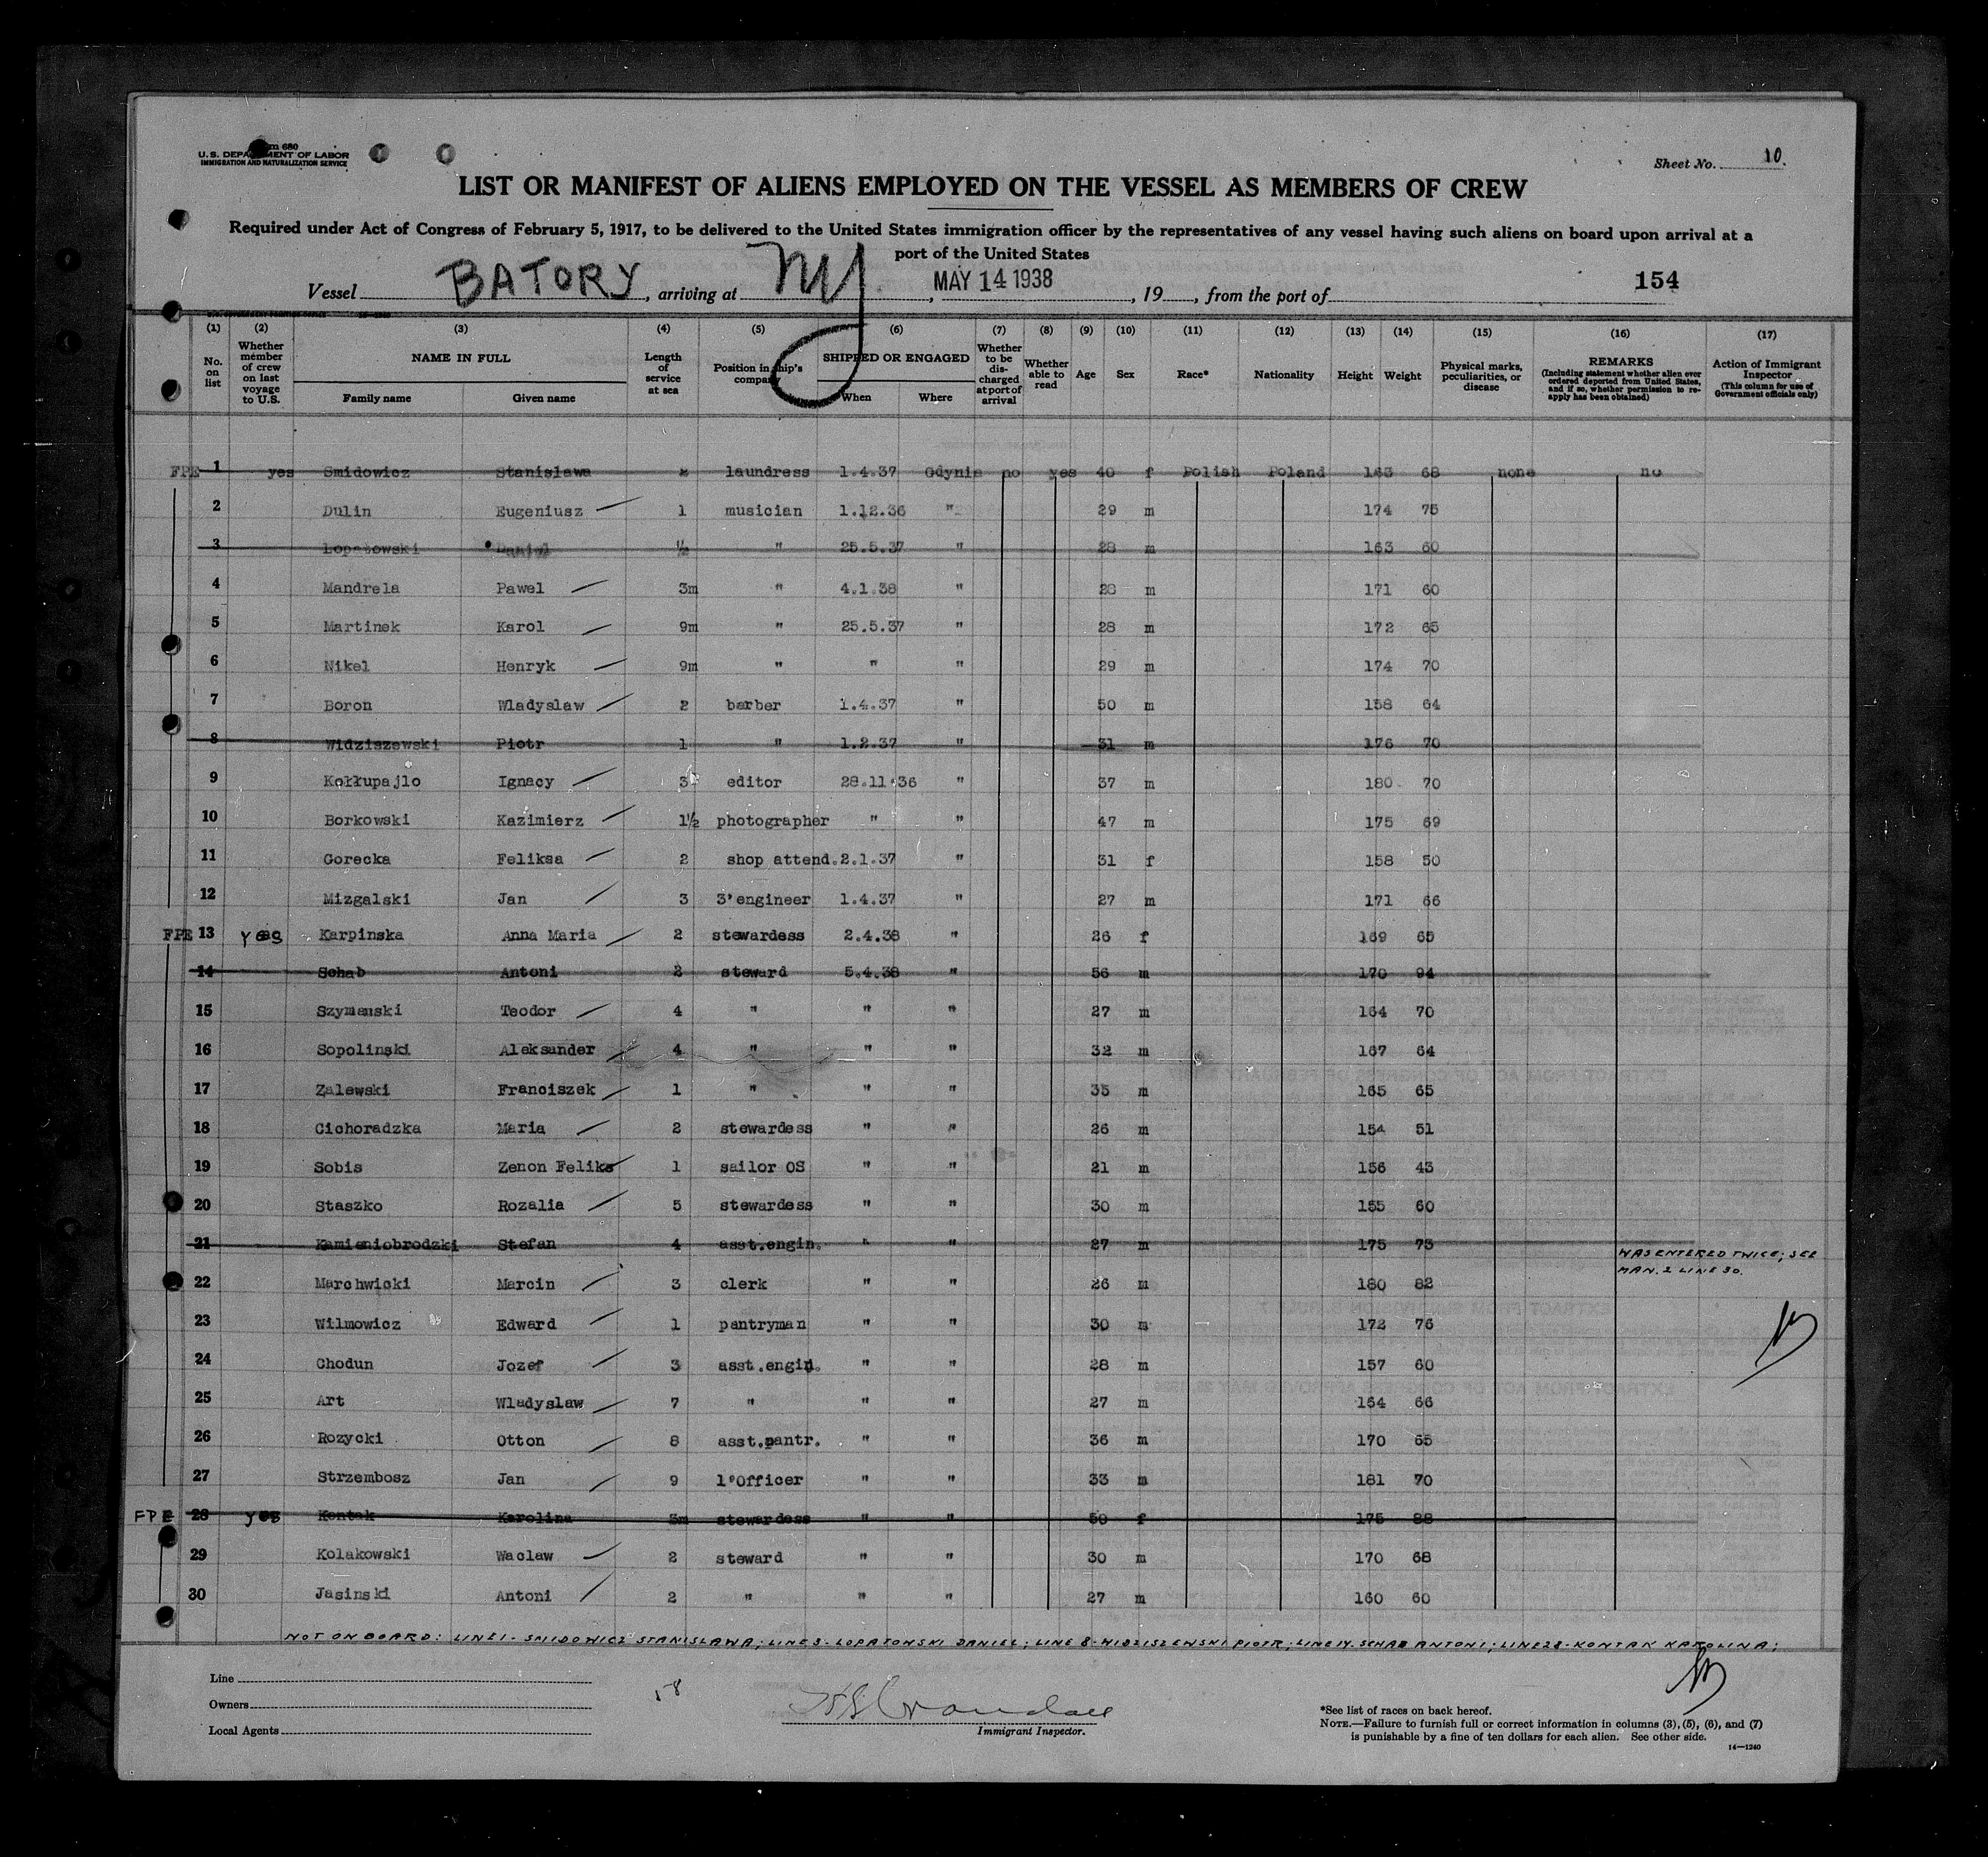 Form 680
U. S. DEPARTMENT OF LABOR
IMMIGRATION AND NATURALIZATION SERVICE
Sheet No. 10.
LIST OR MANIFEST OF ALIENS EMPLOYED ON THE VESSEL AS MEMBERS OF CREW
Required under Act of Congress of February 5, 1917, to be delivered to the United States immigration officer by the representatives of any vessel having such aliens on board upon arrival at a
port of the United States
Vessel BATORY, arriving at NY, MAY 14 1938, 19, from the port of 154
(1) (2) (3) (4) (5) (6) (7) (8) (9) (10) (11) (12) (13) (14) (15) (16) (17)
No. on list
Whether member of crew on last voyage to U.S.
NAME IN FULL
Family name Given name
Length of service at sea
Position in ship's company
SHIPPED OR ENGAGED
When Where
Whether to be discharged at port of arrival
Whether able to read
Age
Sex
Race*
Nationality
Height
Weight
Physical marks, peculiarities, or disease
REMARKS
(Including statement whether alien ever ordered deported from United States, and if so, whether permission to reapply has been obtained)
Action of Immigrant Inspector
(This column for use of Government officials only)
FPE 1 yes Smidowicz Stanislawa laundress 1.4.37 Gdynia no yes 40 f Polish Poland 163 68 none no
2 Dulin Eugeniusz 1 musician 1.12.36 " 29 m 174 75
3 Lopatowski Daniel ½ " 25.5.37 " 28 m 163 60
4 Mandrela Pawel 3m " 4.1.38 " 28 m 171 60
5 Martinek Karol 9m " 25.5.37 " 28 m 172 65
6 Nikel Henryk 9m " " " 29 m 174 70
7 Boron Wladyslaw 2 barber 1.4.37 " 50 m 158 64
8 Widziszewski Piotr 1 " 1.2.37 " 31 m 176 70
9 Kołłupajlo Ignacy 3 editor 28.11.36 " 37 m 180 70
10 Borkowski Kazimierz 1½ photographer " " 47 m 175 69
11 Gorecka Feliksa 2 shop attend. 2.1.37 " 31 f 158 50
12 Mizgalski Jan 3 3'engineer 1.4.37 " 27 m 171 66
FPE 13 yes Karpinska Anna Maria 2 stewardess 2.4.38 " 26 f 169 65
14 Schab Antoni 2 steward 5.4.38 " 56 m 170 94
15 Szymanski Teodor 4 " " " 27 m 164 70
16 Sopolinski Aleksander 4 " " " 32 m 167 64
17 Zalewski Franciszek 1 " " " 35 m 165 65
18 Cichoradzka Maria 2 stewardess " " 26 m 154 51
19 Sobis Zenon Feliks 1 sailor OS " " 21 m 156 43
20 Staszko Rozalia 5 stewardess " " 30 m 155 60
21 Kamieniobrodzki Stefan 4 asst.engin. " " 27 m 175 73 WAS ENTERED TWICE; SEE
MAN. 2 LINE 30.
22 Marchwicki Marcin 3 clerk " " 26 m 180 82
23 Wilmowicz Edward 1 pantryman " " 30 m 172 76
24 Chodun Jozef 3 asst.engin. " " 28 m 157 60
25 Art Wladyslaw 7 " " " 27 m 164 66
26 Rozycki Otton 8 asst.pantr. " " 36 m 170 65
27 Strzembosz Jan 9 1'Officer " " 33 m 181 70
FPE 28 yes Kontak Karolina 3m stewardess " " 50 f 175 88
29 Kolakowski Waclaw 2 steward " " 30 m 170 68
30 Jasinski Antoni 2 " " " 27 m 160 60
NOT ON BOARD: LINE 1 - SMIDOWICZ STANISLAWA; LINE 3 - LOPATOWSKI DANIEL; LINE 8 - WIDZISZEWSKI PIOTR; LINE 14. SCHAB ANTONI; LINE 28 - KONTAK KAROLINA;
Line
Owners 58
Local Agents
Crandall
Immigrant Inspector.
*See list of races on back hereof.
NOTE.—Failure to furnish full or correct information in columns (3), (5), (6), and (7)
is punishable by a fine of ten dollars for each alien. See other side.
14—1240